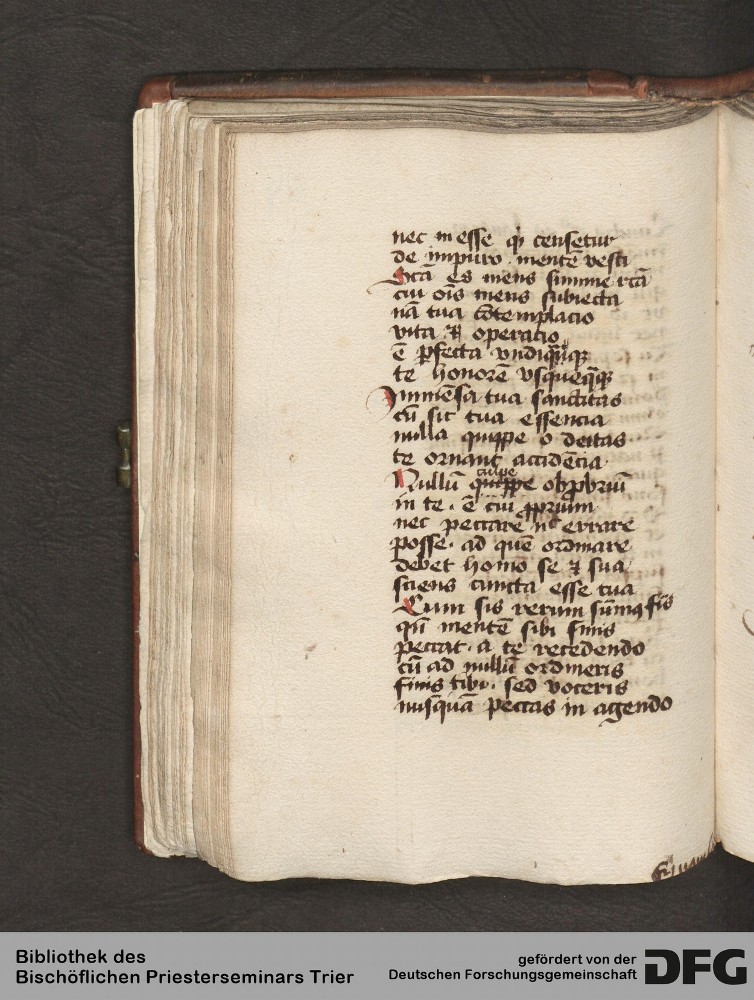 nec in esse qͥ censetur
de impuro · mentē vesti
Sctā es mens summe rctā
cui oīs mens subiecta
nā tua cōtemplacio
vita ⁊ operacio
ē ꝑfecta vndiqūqꝫ
te honorē vsquequaqꝫ
Inmēsa tua sanctitas
cū sit tua essencia
nulla quippe o deitas
te ornant accidēcia
Nullū quippe culpe obꝓbriū
in te · ē cui ꝓprium
nec peccare nͨ errare
posse · ad quē ordinare
debet homo se ⁊ sua
sciens cuncta esse tua
Cum sis rerum sūmꝰ fīs
qū mentē sibi finis
peccat · a te recedendo
cū ad nullū ordineris
finis tibi · sed voceris
nusquā peccas in agendo
Bibliothek des
Bischöflichen Priesterseminars Trier
gefördert von der
Deutschen Forschungsgemeinschaft
DFG